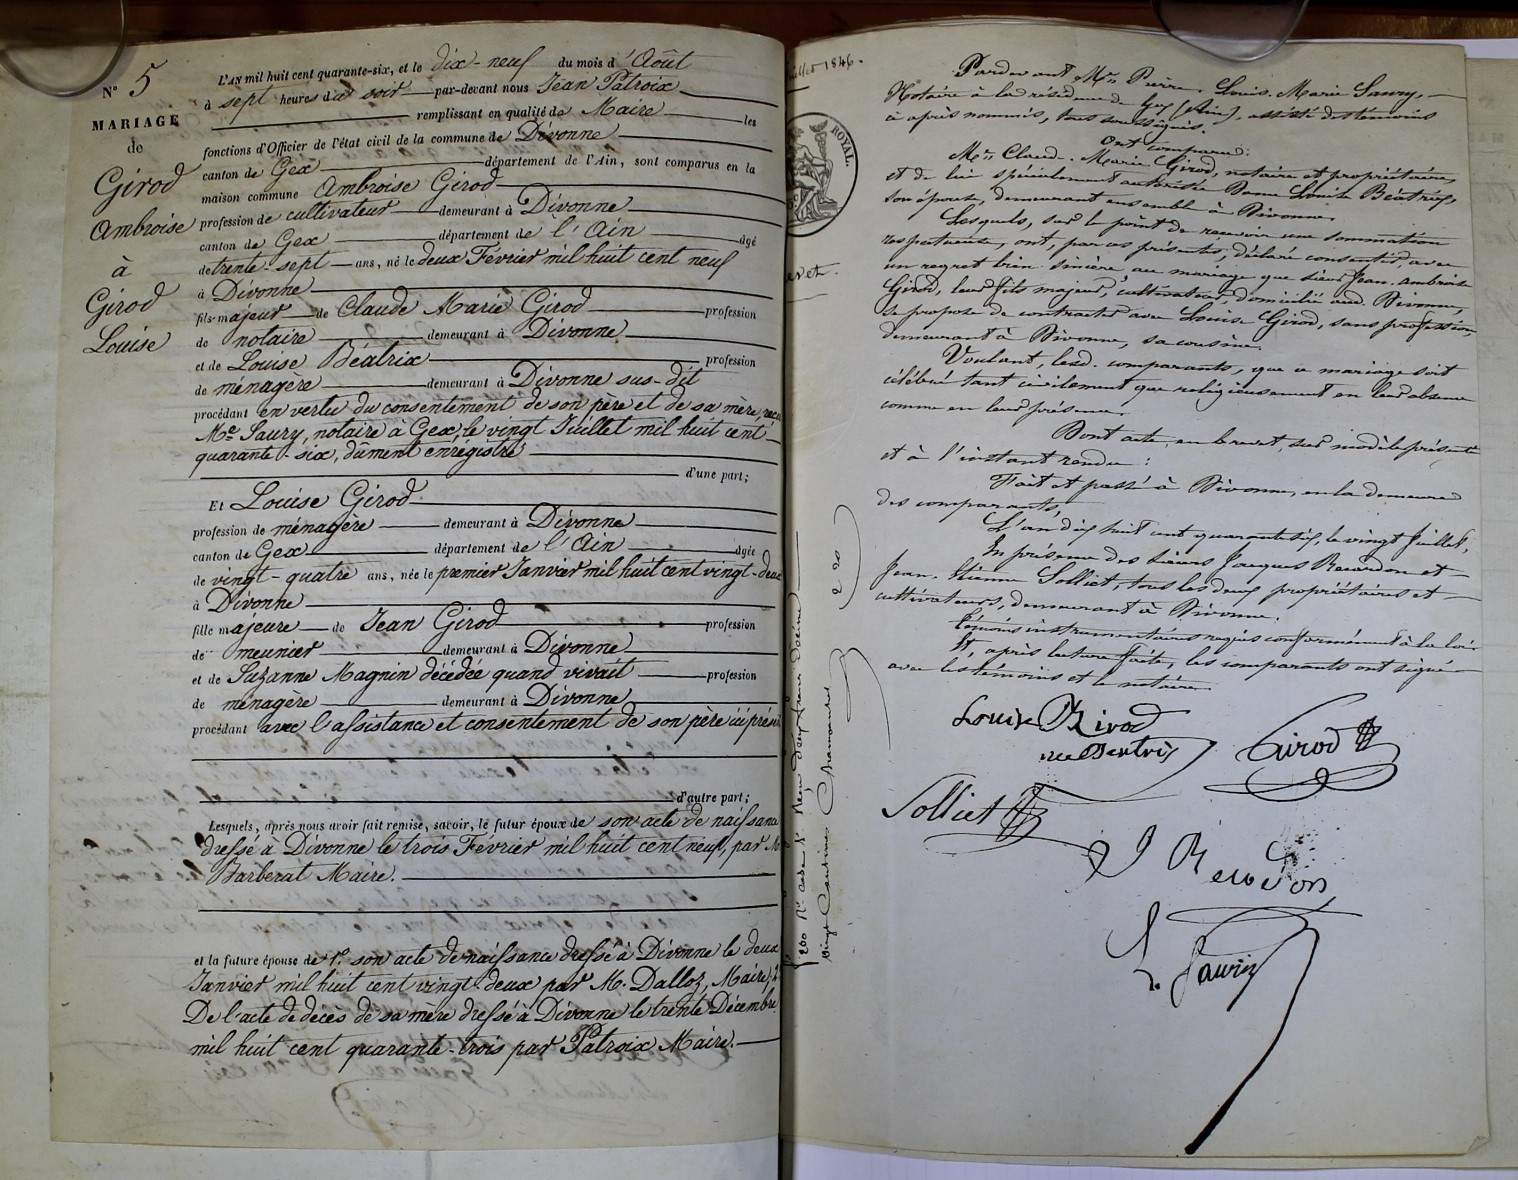 N° 5
MARIAGE
de
Girod
Ambroise
à
Girod
Louise
L'AN mil huit cent quarante-six, et le dix-neuf du mois d'Août
à sept heures du soir par-devant nous Jean Patroix
remplissant en qualité de Maire les
fonctions d'Officier de l'état civil de la commune de Divonne
canton de Gex département de l'Ain, sont comparus en la
maison commune Ambroise Girod
profession de cultivateur demeurant à Divonne
canton de Gex département de l'Ain âgé
de trente-sept ans, né le deux Février mil huit cent neuf
à Divonne
fils majeur de Claude Marie Girod profession
de notaire demeurant à Divonne
et de Louise Béatrix profession
de ménagère demeurant à Divonne sus-dit
procédant en vertu du consentement de son père et de sa mère, reçu
Me Saury, notaire à Gex, le vingt Juillet mil huit cent
quarante-six, dument enregistré
d'une part;
Et Louise Girod
profession de ménagère demeurant à Divonne
canton de Gex département de l'Ain âgée
de vingt-quatre ans, née le premier Janvier mil huit cent vingt-deux
à Divonne
fille majeure de Jean Girod profession
de meunier demeurant à Divonne
et de Suzanne Magnin décédée quand vivait profession
de ménagère demeurant à Divonne
procédant avec l'assistance et consentement de son père ici présent
d'autre part;
Lesquels, après nous avoir fait remise, savoir, le futur époux de son acte de naissance
dressé à Divonne le trois Février mil huit cent neuf, par M
Barberat Maire.
et la future épouse de 1° son acte de naissance dressé à Divonne le deux
Janvier mil huit cent vingt-deux par M. Dalloz, Maire; 2
De l'acte de décès de sa mère dressé à Divonne le trente Décembre
mil huit cent quarante-trois par Patroix Maire.
1846.
ROYAL
Pardevant Me Pierre Louis Marie Saury,
Notaire à la résidence de Gex (Ain), assisté des témoins
ci après nommés, tous soussignés.
Ont comparu:
Me Claude Marie Girod, notaire et propriétaire,
et de lui spécialement autorisée Dame Louise Béatrix,
son épouse, demeurant ensemble à Divonne,
Lesquels, sur le point de recevoir une sommation
respectueuse, ont, par ces présentes, déclaré consentir, avec
un regret bien sincère au mariage que sieur Jean Ambroise
Girod, leur fils majeur, cultivateur, domicilié aud. Divonne,
se propose de contracter avec Louise Girod, sans profession,
demeurant à Divonne, sa cousine.
Voulant, lesd. comparants, que ce mariage soit
célébré tant civilement que religieusement en leur absence
comme en leur présence.
Dont acte, en brevet, sur modèle présenté
et à l'instant rendu:
Fait et passé à Divonne, en la demeure
des comparants,
L'an dix huit cent quarante six, le vingt Juillet,
En présence des sieurs Jacques Révérdon et
Jean Etienne Solliet, tous les deux propriétaires et
cultivateurs, demeurant à Divonne.
Témoins instrumentaires requis conformément à la loi.
Et, après lecture faite, les comparants ont signé
avec les témoins et le notaire.
Louise Girod
née Beatrix
Girod
Solliet